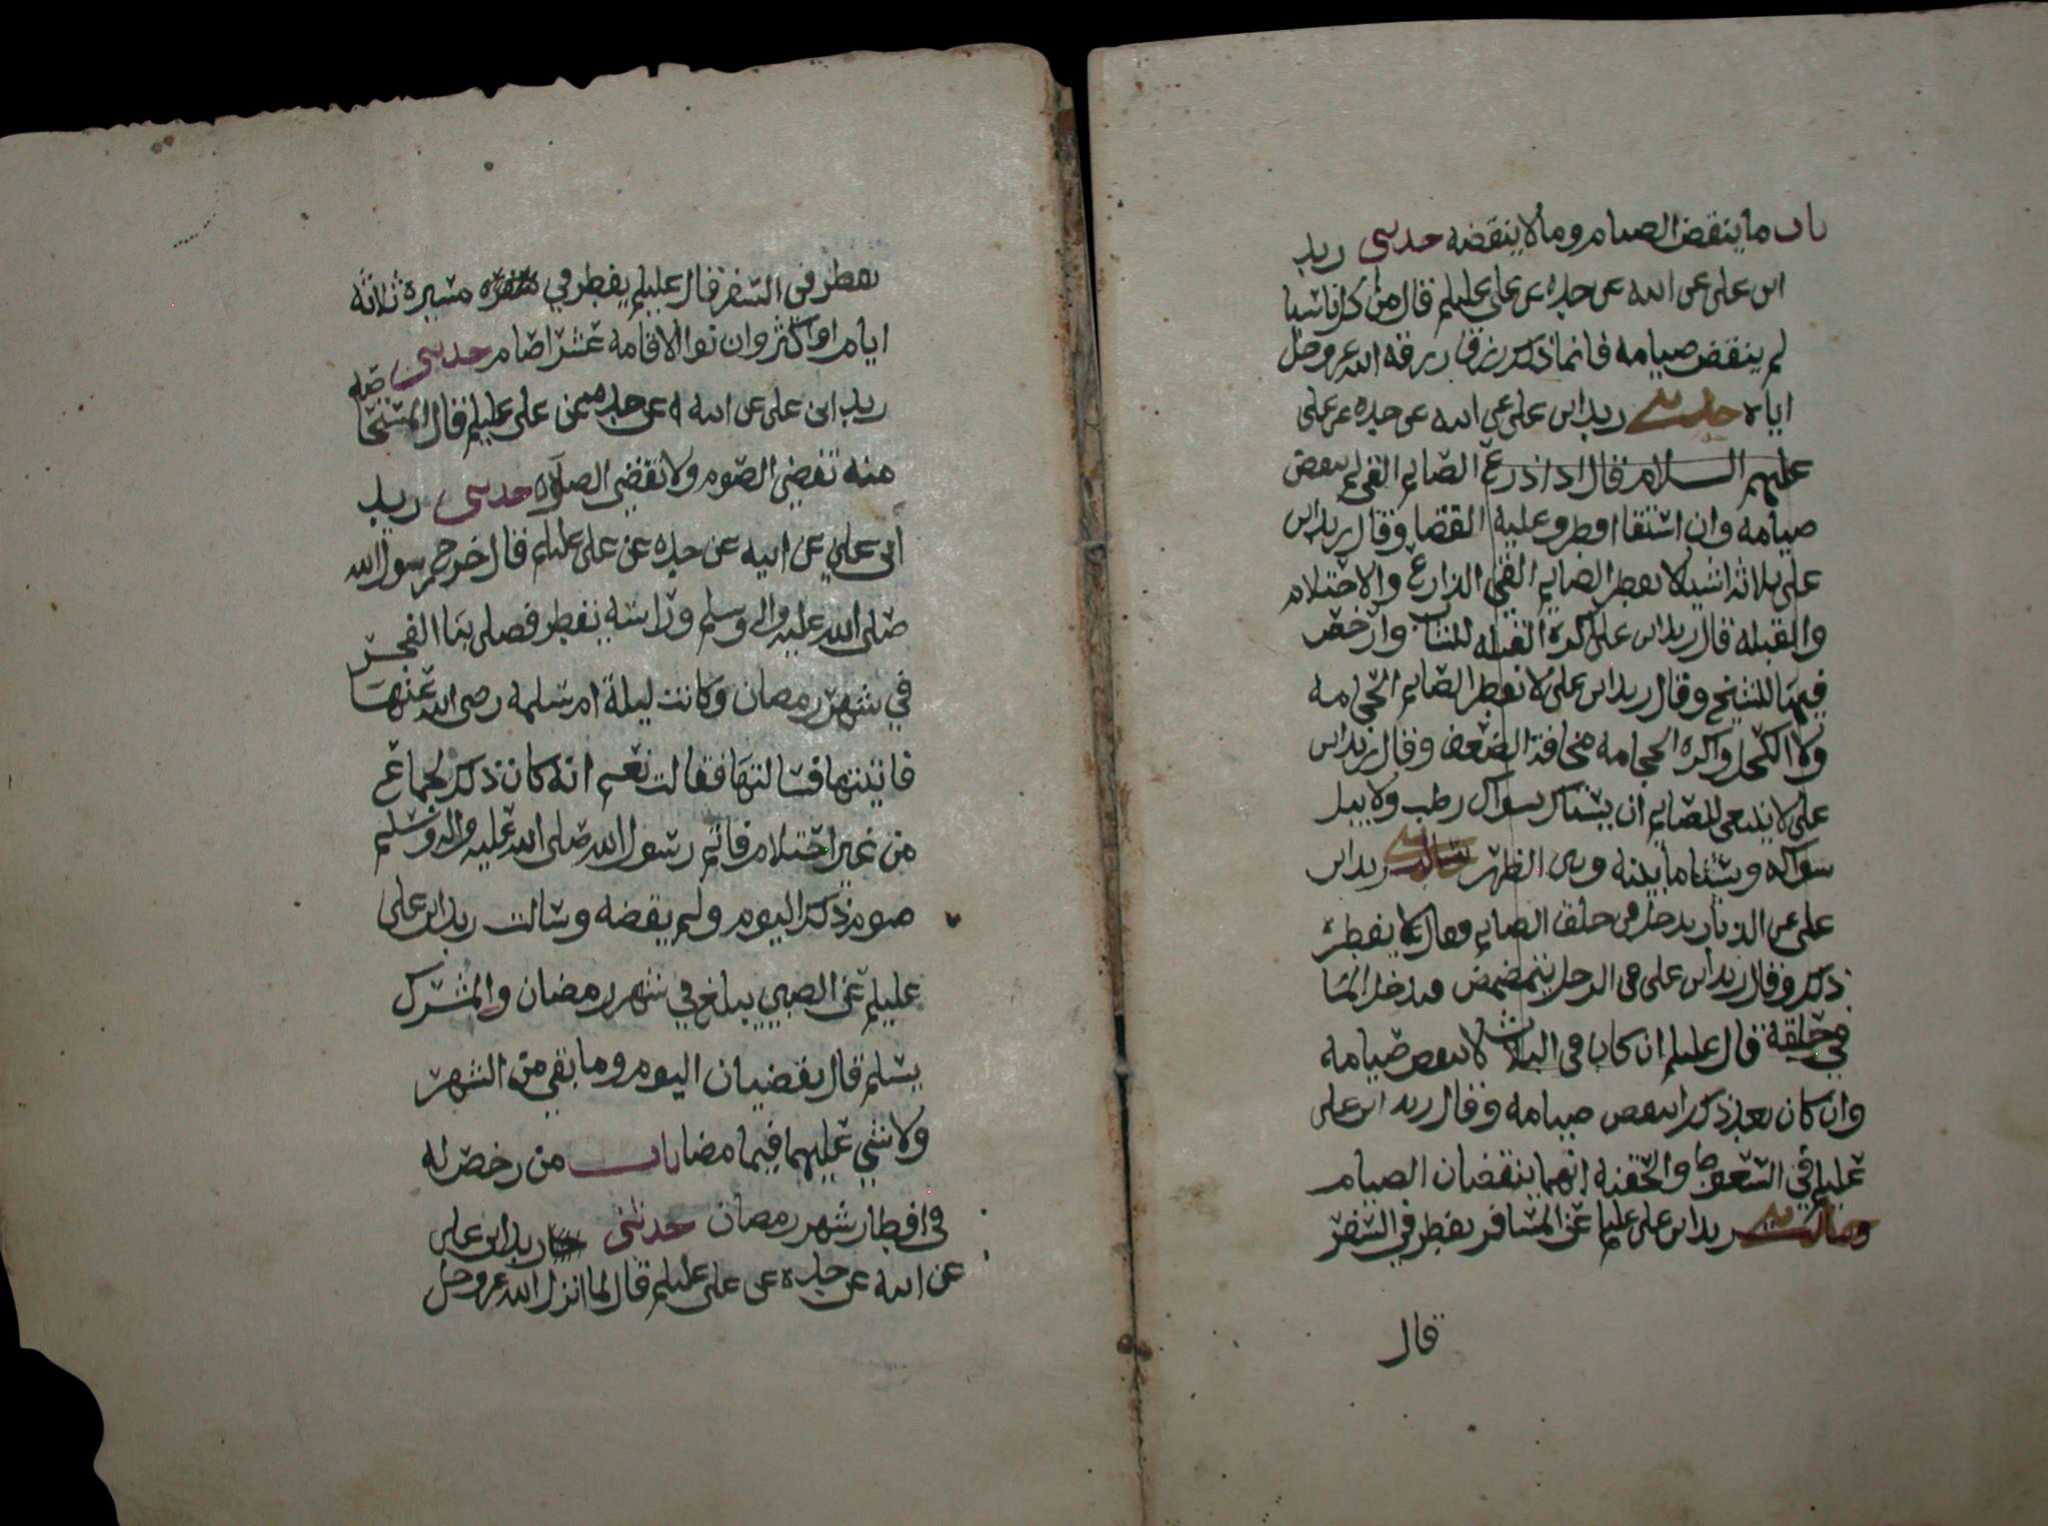 باب ما ينقض الصيام وما لا ينقضه حدثني زيد
ابن علي عن ابيه عن جده عن علي عليلم قال من اكل ناسيا
لم ينقض صيامه فانما ذلك رزق رزقه الله عز وجل
اياه حدثني زيد ابن علي عن ابيه عن جده عن علي
عليهم السلام قال اذا ذرع الصايم القي لم ينقض
صيامه وان استقا افطر وعليه القضا وقال زيد ابن
علي ثلاثة اشيا لا يفطر الصايم القي الذارع والاحتلام
والقبله قال زيد ابن علي اكره القبله للشاب وارخص
فيها للشيخ وقال زيد ابن علي لا يفطر الصايم الحجامه
ولا الكحل واكره الحجامه مخافة الضعف وقال زيد ابن
علي لا ينبغي للصايم ان يستاك بسواك رطب ولا يبل
سواكه ويستاك ما بينه وبين الظهر سالت زيد ابن
علي عن الذباب يدخل في حلق الصايم فقال لا يفطره
ذلك وقال زيد ابن علي في الرجل يتمضمض فيدخل الما
في حلقه قال عليلم ان كان في الثلاث لا ينقض صيامه
وان كان بعد ذلك انتقض صيامه وقال زيد ابن علي
عليلم في السعوط والحقنه انهما ينقضان الصيام
وسالت زيد ابن علي عليلم عن المسافر يفطر في السفر
قال
يفطر في السفر قال عليلم يفطر في مسيرة ثلاثه
ايام او اكثر وان نوا الاقامه عشرا صام حدثني
زيد ابن علي عن ابيه عن جده عن علي عليلم قال المستحاضه
منه تقضي الصوم ولا تقضي الصلاه حدثني زيد
ابن علي عن ابيه عن جده عن علي عليلم قال خرج رسول الله
صلى الله عليه واله وسلم وراسه يقطر فصلى بنا الفجر
في شهر رمضان وكانت ليلة ام سلمه رضي الله عنها
فاتيتها فسالتها فقالت نعم انه كان ذلك لجماع
من غير احتلام فاتم رسول الله صلى الله عليه واله وسلم
صوم ذلك اليوم ولم يقضه وسالت زيد ابن علي
عليلم عن الصبي يبلغ في شهر رمضان والمشرك
يسلم قال يقضيان اليوم وما بقي من الشهر
ولا شي عليهما فيما مضا باب من رخص له
في افطار شهر رمضان حدثني زيد ابن علي
عن ابيه عن جده عن علي عليلم قال لما انزل الله عز وجل